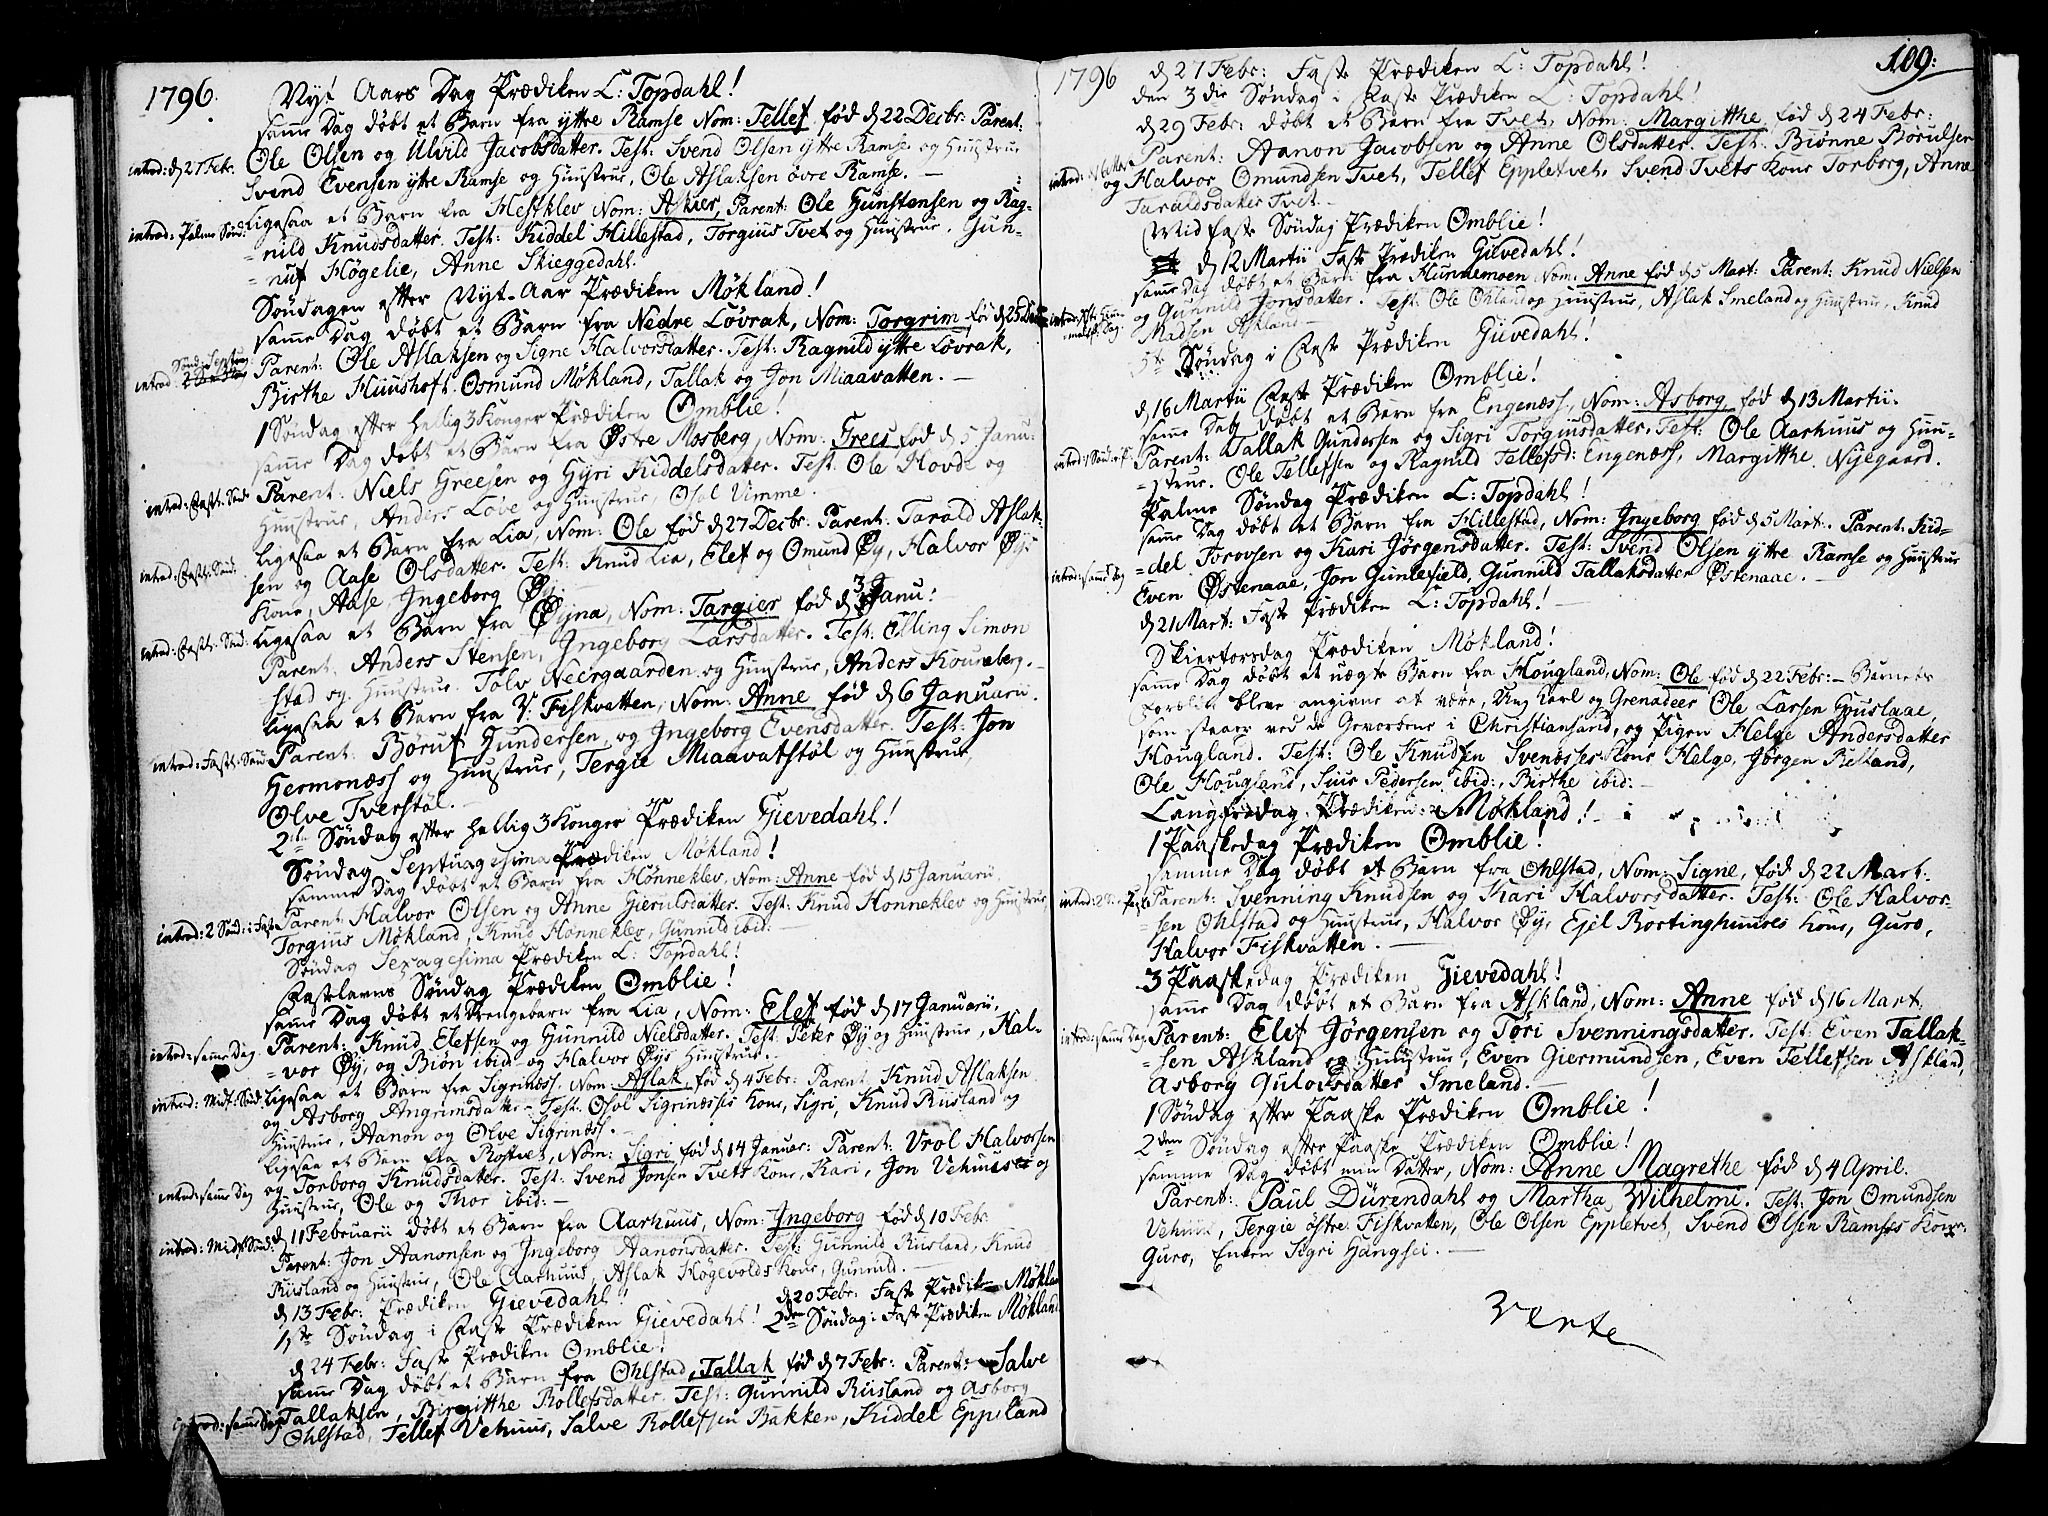 1796.
Nyt Aars Dag Prædiken L: Topdahl!
samme Dag døbt et Barn fra yttre Ramse Nom: Tellef fød d 22 Decbr: Parent:
introd: d 27 Febr.
Ole Olsen og Ulvild Jacobsdatter. Test: Svend Olsen yttre Ramse og Huustrue
Svend Evensen yttre Ramse og Huustrue, Ole Aslaksen øvre Ramse. —
introd: Palme Sønd:
Ligesaa et Barn fra Hestklev Nom: Askier, Parent: Ole Gunstensen og Rag-
=nild Knudsdatter. Test: Kiddel Hillestad, Torgiuus Tvet og Huustrue, Gun-
=nuf Høgelie, Anne Skieggedahl.
Søndagen efter Nyt-Aar Prædiken Møkland!
samme Dag døbt et Barn fra Nedre Løvrak, Nom: Torgrim fød d 25 Decbr
introd: Sønd: Septuag
Parent: Ole Aslaksen og Signe Halvorsdatter. Test: Ragnild yttre Løvrak,
Birthe Huushoft. Osmund Møkland, Tallak og Jon Miaavatten. —
1 Søndag efter hellig 3 Konger Prædiken Omblie!
samme Dag døbt et Barn fra Østre Mosberg, Nom: Grees fød d 5 Janu:
introd: Fastl: Sønd:
Parent: Niels Greesen og Gyri Kiddelsdatter. Test: Ole Hovde og
Huustrue, Anders Løve og Huustrue, Osol Vimme.
Ligesaa et Barn fra Lia, Nom: Ole fød d 27 Decbr: Parent: Tarald Aslak-
introd: Fastl: Sønd:
sen og Aase Olsdatter. Test: Knud Lia, Elef og Omund Øy, Halvor Øys
Kone, Aase, Ingeborg Øy.
Ligesaa et Barn fra Øyna, Nom: Targier fød d 3 Janu:
introd: Fastl: Sønd:
Parent. Anders Stensen, Ingeborg Larsdatter. Test: Elling Simon
=stad og Huustrue. Tolv Neergaarden og Huustrue, Anders Kouneberg.
ligesaa et Barn fra V: Fiskvatten, Nom: Anne fød d 6 Januarii.
introd: Fastl: Sønd:
Parent: Børuf Gundersen, og Ingeborg Evensdatter. Test: Jon
Hermonæss og Huustrue, Tergie Miaavatstøl og Huustrue,
Olve Tverstøl. —
2den Søndag efter hellig 3 Konger Prædiken Gievedahl!
Søndag Septuagesima Prædiken Møkland!
samme Dag døbt et Barn fra Hønneklev, Nom: Anne fød d 15 Januarii.
introd: 2 Sønd: i Faste
Parent Halvor Olsen og Anne Gierulsdatter. Test: Knud Honneklev og Huustrue,
Torgiuus Møkland, Knud Hønneklev, Gunnild ibid: —
Søndag Sexagesima Prædiken L: Topdahl!
Fastelavns Søndag Prædiken Omblie!
samme Dag døbt et Drengebarn fra Lia, Nom: Elef fød d 17 Januarii.
introd: samme Dag.
Parent: Knud Elefsen og Gunnild Nielsdatter. Test. Peter Øy og Huustrue, Hal-
=vor Øy, og Biøn ibid: og Halvor Øys Huustrue. —
introd: Midf: Sønd:
Ligesaa et Barn fra Sigrinæss. Nom: Aslak fød d 4 Febr: Parent. Knud Aslaksen
og Asborg Angrimsdatter. Test: Osol Sigrinæsses Kone, Sigri, Knud Riisland og
Huustrue, Aanon og Olve Sigrinæss. —
Ligesaa et Barn fra Rostvet, Nom: Sigri fød d 14 Januar: Parent: Vrol Halvorsen
introd: samme Dag
og Torborg Knudsdatter. Test: Svend Jonsen Tvets Kone, Kari, Jon Vehuus og
Huustrue, Ole og Thor ibid: —
d 11 Februarii døbt et Barn fra Aarhuus, Nom: Ingeborg fød d 10 Febr
introd: Midf: Sønd:
Parent: Jon Aanonsen og Ingeborg Aanonsdatter. Test: Gunnild Riisland, Knud
Riisland og Huustrue, Ole Aarhuus, Aslak Høgevolds Kone, Gunnild. —
d 13 Febr: Prædiken Gievedahl!
d 20 Febr: Faste Prædiken Møkland
1ste Søndag i Faste Prædiken Gievedahl!
2den Søndag i Faste Prædiken Møkland
d 24 Febr: Faste Prædiken Omblie!
samme Dag døbt et Barn fra Ohlstad, Tallak fød d 7 Febr: Parent: Salve
introd: samme Dag
Tallaksen, Birgitthe Rollefsdatter. Test: Gunnild Riisland og Asborg
Ohlstad, Tellef Vehuus, Salve Rollefsen Bakken, Kiddel Eppeland
1796
109:
d 27 Febr: Faste Prædiken L: Topdahl!
den 3die Søndag i Faste Prædiken L: Topdahl!
d 29 Febr: døbt et Barn fra Tvet, Nom: Margitthe fød d 24 Febr:
Parent: Aanon Jacobsen og Anne Olsdatter. Test: Biønne Børuldsen
og Halvor Omundsen Tvet, Tellef Eppletvet, Svend Tvets Kone Torborg, Anne
Taraldsdatter Tvet. —
Midfaste Søndag Prædiken Omblie!
d 12 Martii Faste Prædiken Gievedahl!
samme Dag døbt et Barn fra Hunnemoen Nom: Anne fød d 5 Mart: Parent: Knud Nielsen
og Gunnild Jonsdatter. Test: Ole Ohland og Huustrue, Aslak Smeland og Huustrue, Knud
Madsen Askland —
5te Søndag i Faste Prædiken Gievedahl!
d 16 Martii Faste Prædiken Omblie!
samme Dag døbt et Barn fra Engenæss, Nom: Asborg fød d 13 Martii.
Parent: Tallak Gundersen og Sigri Torgiusdatter. Test: Ole Aarhuus og Huu-
=strue. Ole Tellefsen og Ragnild Tellefsd: Engenæss, Margitthe Nyegaard.
Palme Søndag Prædiken L: Topdahl!
samme Dag døbt et Barn fra Hillestad, Nom: Ingeborg fød d 5 Mart: Parent: Kid-
introd: samme Dag
=del Torovsen og Kari Jørgensdatter. Test: Svend Olsen yttre Ramse og Huustrue
Even Østenaae, Jon Gunlefield, Gunnild Tallaksdatter Østenaae. —
d 21 Mart: Faste Prædiken L: Topdahl! —
Skiertorsdag Prædiken Møkland!
samme Dag døbt et uægte Barn fra Hougland, Nom: Ole fød d 22 Febr: — Barnets
Forældre bleve angivne at være, Ung Karl og Grenadeer Ole Larsen Huslaae,
som staaer ved de Gevorbne i Christiansand, og Pigen Helge Andersdatter
Hougland. Test: Ole Knudsen Svenæsses Kone Helge, Jørgen Relland,
Ole Hougland, Siur Pedersen ibid:, Birthe ibid: —
Langfredag Prædiken: Møkland!
1 Paaskedag Prædiken Omblie!
samme Dag døbt et Barn fra Ohlstad, Nom: Signe, fød d 22 Mart:
Parent: Svenning Knudsen og Kari Halvorsdatter. Test: Ole Halvor-
=sen Ohlstad og Huustrue, Halvor Øy, Ejel Rortinghuuses Kone, Guro,
Halvor Fiskvatten. —
3 Paaskedag Prædiken Gievedahl!
samme Dag døbt et Barn fra Askland, Nom: Anne fød d 16 Mart.
introd: samme Dag.
Parent: Elef Jørgensen og Tøri Svenningsdatter. Test: Even Tallak-
=sen Askland og Huustrue, Even Giermundsen, Even Tellefsen Askland,
Asborg Gulovsdatter Smeland. —
1 Søndag efter Paaske Prædiken Omblie!
2den Søndag efter Paaske Prædiken Omblie!
samme Dag døbt min Datter, Nom: Anne Magrethe fød d 4 April.
Parent: Paul Dürendahl og Martha Wilhelmi. Test: Jon Omundsen
Vehuus, Tergie østre Fiskvatten, Ole Olsen Eppletvet, Svend Olsen Ramses Kone
Guro, Enken Sigri Hangsei. —
Verte